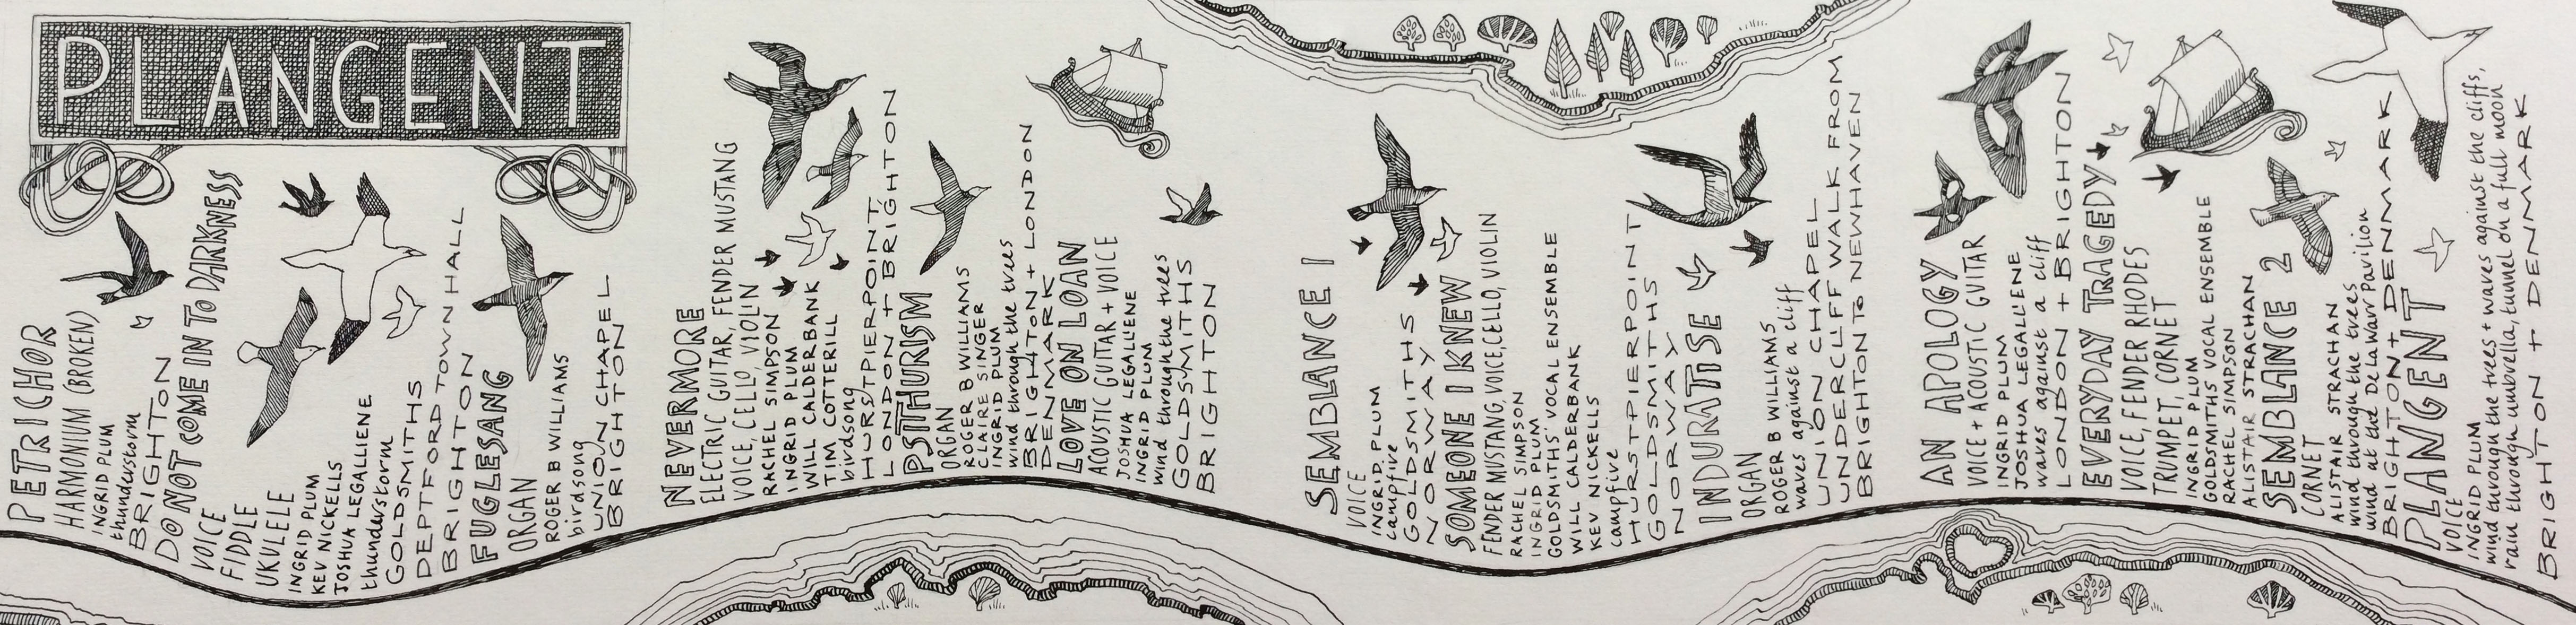 PLANGENT
PETRICHOR
HARMONIUM (BROKEN)
INGRID PLUM
thunderstorm
BRIGHTON
DO NOT COME IN TO DARKNESS
VOICE
FIDDLE
UKULELE
INGRID PLUM
KEV NICKELLS
JOSHUA LEGALLIENE
thunderstorm
GOLDSMITHS
DEPTFORD TOWN HALL
BRIGHTON
FUGLESANG
ORGAN
ROGER B WILLIAMS
birdsong
UNION CHAPEL
BRIGHTON
NEVERMORE
ELECTRIC GUITAR, FENDER MUSTANG
VOICE, CELLO, VIOLIN
RACHEL SIMPSON
INGRID PLUM
WILL CALDERBANK
TIM COTTERILL
birdsong
HURSTPIERPOINT,
LONDON + BRIGHTON
PSITHURISM
ORGAN
ROGER B WILLIAMS
CLAIRE SINGER
INGRID PLUM
wind through the trees
BRIGHTON + LONDON
DENMARK
LOVE ON LOAN
ACOUSTIC GUITAR + VOICE
JOSHUA LEGALLIENE
INGRID PLUM
wind through the trees
GOLDSMITHS
BRIGHTON
SEMBLANCE 1
VOICE
INGRID PLUM
campfire
GOLDSMITHS
NORWAY
SOMEONE I KNEW
FENDER MUSTANG, VOICE, CELLO, VIOLIN
RACHEL SIMPSON
INGRID PLUM
GOLDSMITHS' VOCAL ENSEMBLE
WILL CALDERBANK
KEV NICKELLS
campfire
HURSTPIERPOINT
GOLDSMITHS
NORWAY
INDURATISE
ORGAN
ROGER B WILLIAMS
waves against a cliff
UNION CHAPEL
UNDERCLIFF WALK FROM
BRIGHTON TO NEWHAVEN
AN APOLOGY
VOICE + ACOUSTIC GUITAR
INGRID PLUM
JOSHUA LEGALLIENE
waves against a cliff
LONDON + BRIGHTON
EVERYDAY TRAGEDY
VOICE, FENDER RHODES
TRUMPET, CORNET
INGRID PLUM
GOLDSMITHS VOCAL ENSEMBLE
RACHEL SIMPSON
ALISTAIR STRACHAN
SEMBLANCE 2
CORNET
ALISTAIR STRACHAN
wind through the trees
wind at the De La Warr Pavilion
BRIGHTON + DENMARK
PLANGENT
VOICE
INGRID PLUM
wind through the trees + waves against the cliffs,
rain through umbrella, tunnel on a full moon
BRIGHTON + DENMARK